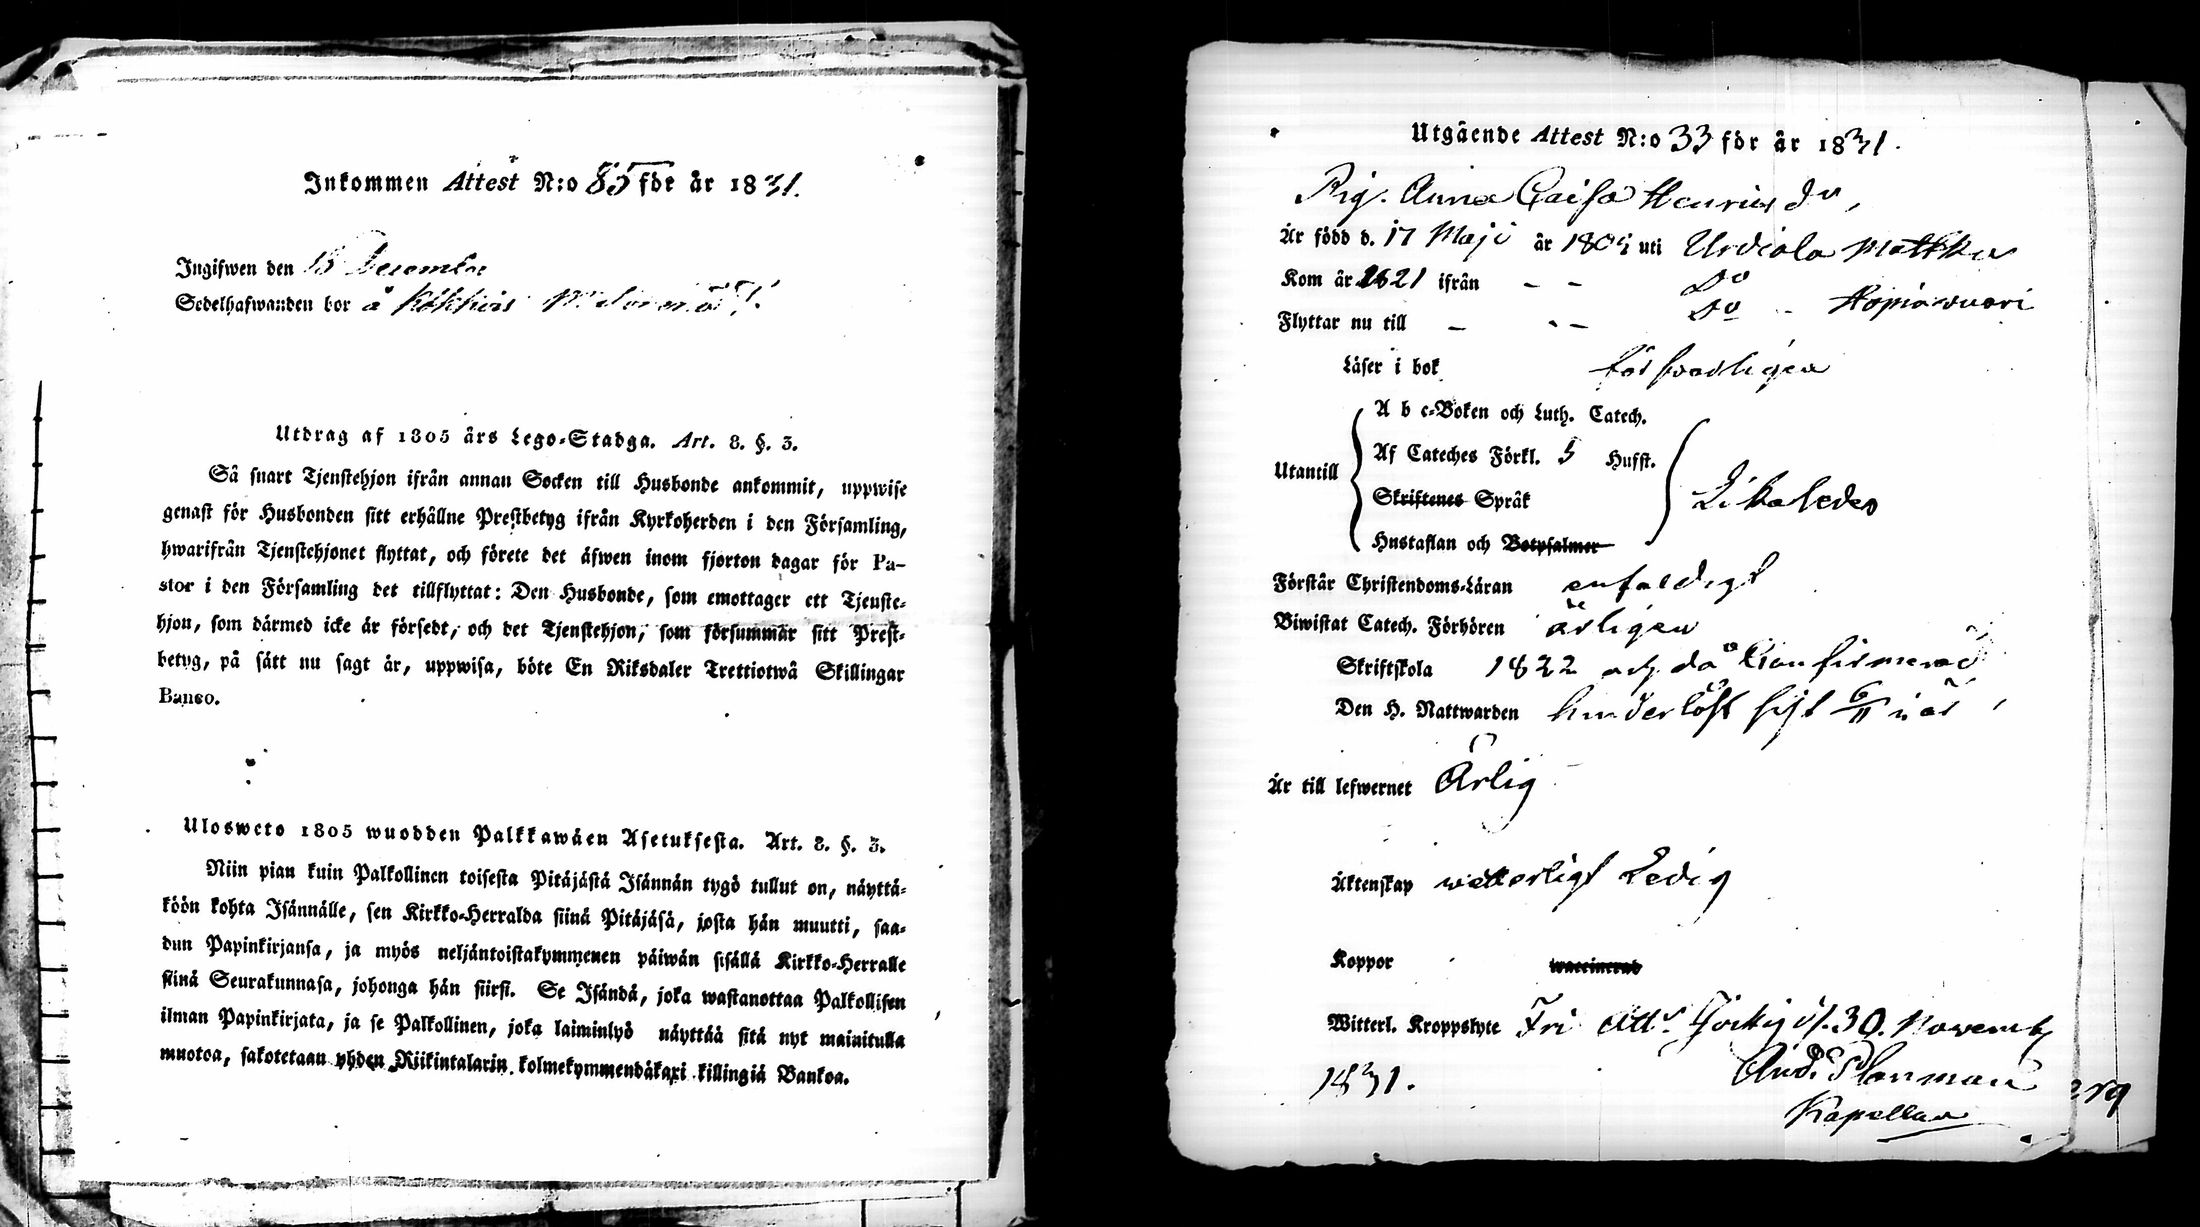 Inkommen Attest N:o 85 för år 1831.
Ingifwen den 18 December
Sedelhafwanden bor å
Utdrag af 1805 års Lego-Stadga. Art. 8. §. 3.
Så snart Tjenstehjon ifrån annan Socken till Husbonde ankommit, uppwise
genast för Husbonden sitt erhållne Prestbetyg ifrån Kyrkoherden i den Församling,
hwarifrån Tjenstehjonet flyttat, och förete det äfwen inom fjorton dagar för Pa-
stor i den Församling det tillflyttat: Den Husbonde, som emottager ett Tjenste-
hjon, som därmed icke är försedt, och det Tjenstehjon, som försummar sitt Prest-
betyg, på sätt nu sagt är, uppwisa, böte En Riksdaler Trettiotwå Skillingar
Banco.
Ulosweto 1805 wuodden Palkkawäen Asetuksesta. Art. 8. §. 3.
Niin pian kuin Palkollinen toisesta Pitäjästä Isännän tygö tullut on, näyttä-
köön kohta Isännälle, sen Kirkko-Herralda siinä Pitäjäsä, josta hän muutti, saa-
dun Papinkirjansa, ja myös neljäntoistakymmenen päiwän sisällä Kirkko-Herralle
siinä Seurakunnasa, johonga hän siirsi. Se Isändä, joka wastanottaa Palkollisen
ilman Papinkirjata, ja se Palkollinen, joka laiminlyö näyttää sitä nyt mainitulla
muotoa, sakotetaan yhden Riikintalarin kolmekymmendäkaxi killingiä Bankoa.
Utgående Attest N:o 33 för år 1831.
Pig. Anna Caisa Henriks dr,
Är född d. 17 Maji år 1804 uti Urdiala Mattku
Kom år 1821 ifrån - - Do
Flyttar nu till - - - Do - Hopiawuori
Läser i bok försvarligen
Utantill
A b c-Boken och Luth. Catech.
Af Cateches Förkl. 5 Hufst.
Skriftenes Språk
Hustaflan och Botpsalmer
Likaledes
Förstår Christendoms-Läran enfaldigt
Biwistat Catech. Förhören årligen
Skriftskola 1822 och då Confirmerad
Den H. Nattwarden hinderlöst sist 6/11 i år
Är till lefwernet Ärlig
Äktenskap witterligt Ledig
Koppor waccinerad
Witterl. Kroppslyte Fri Att. 30. Novemb
1831.
And. Planman
Kapellan